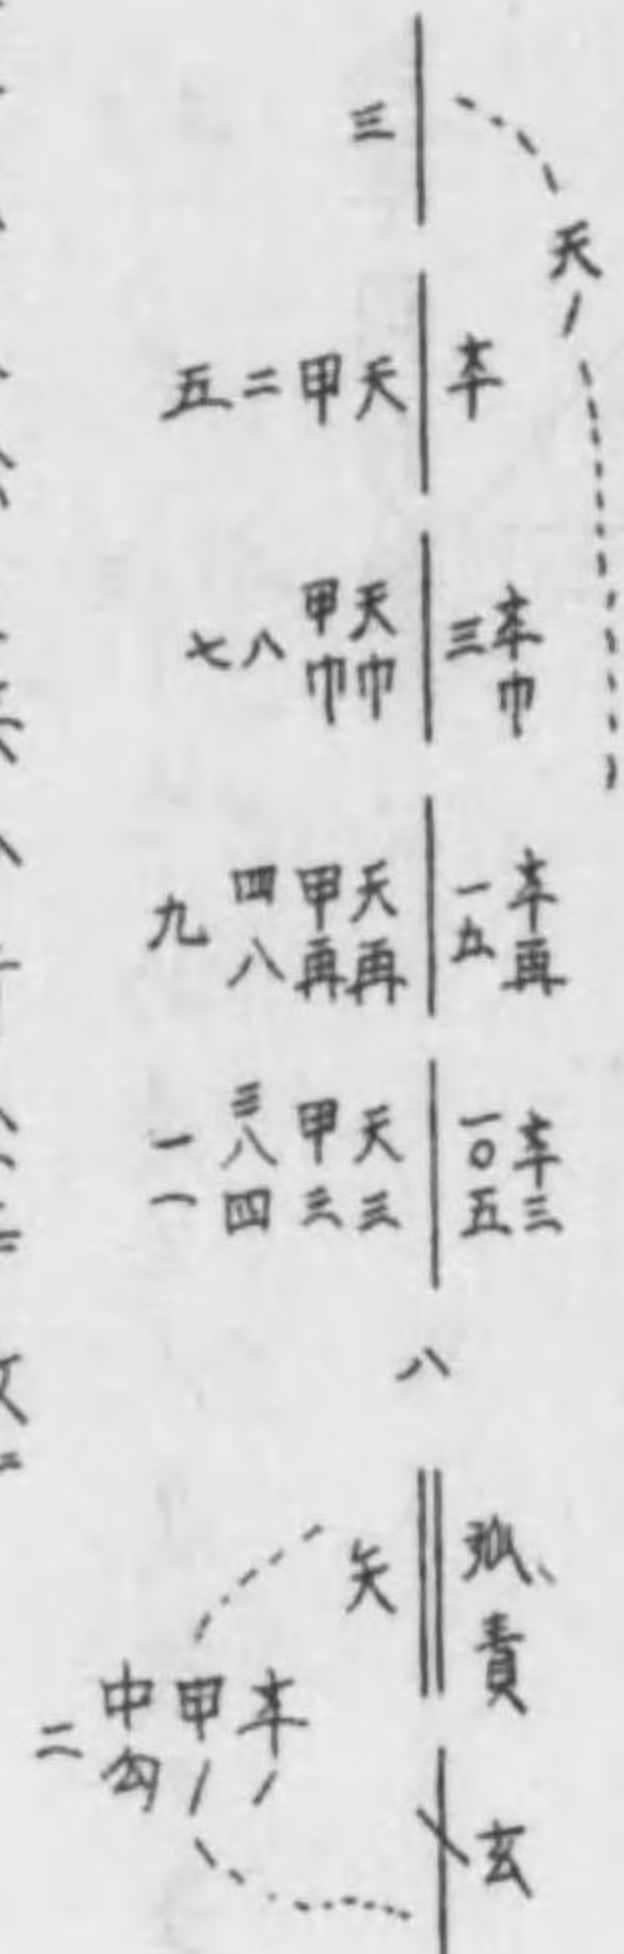 天
三
卒
天
甲
二
五
卒巾
三
天巾
甲巾
八
七
卒再
一五
天再
甲再
四八
九
卒三
一〇五
天三
甲三
三八四
一一
八
弧責
矢
玄
卒
甲
中勾
二